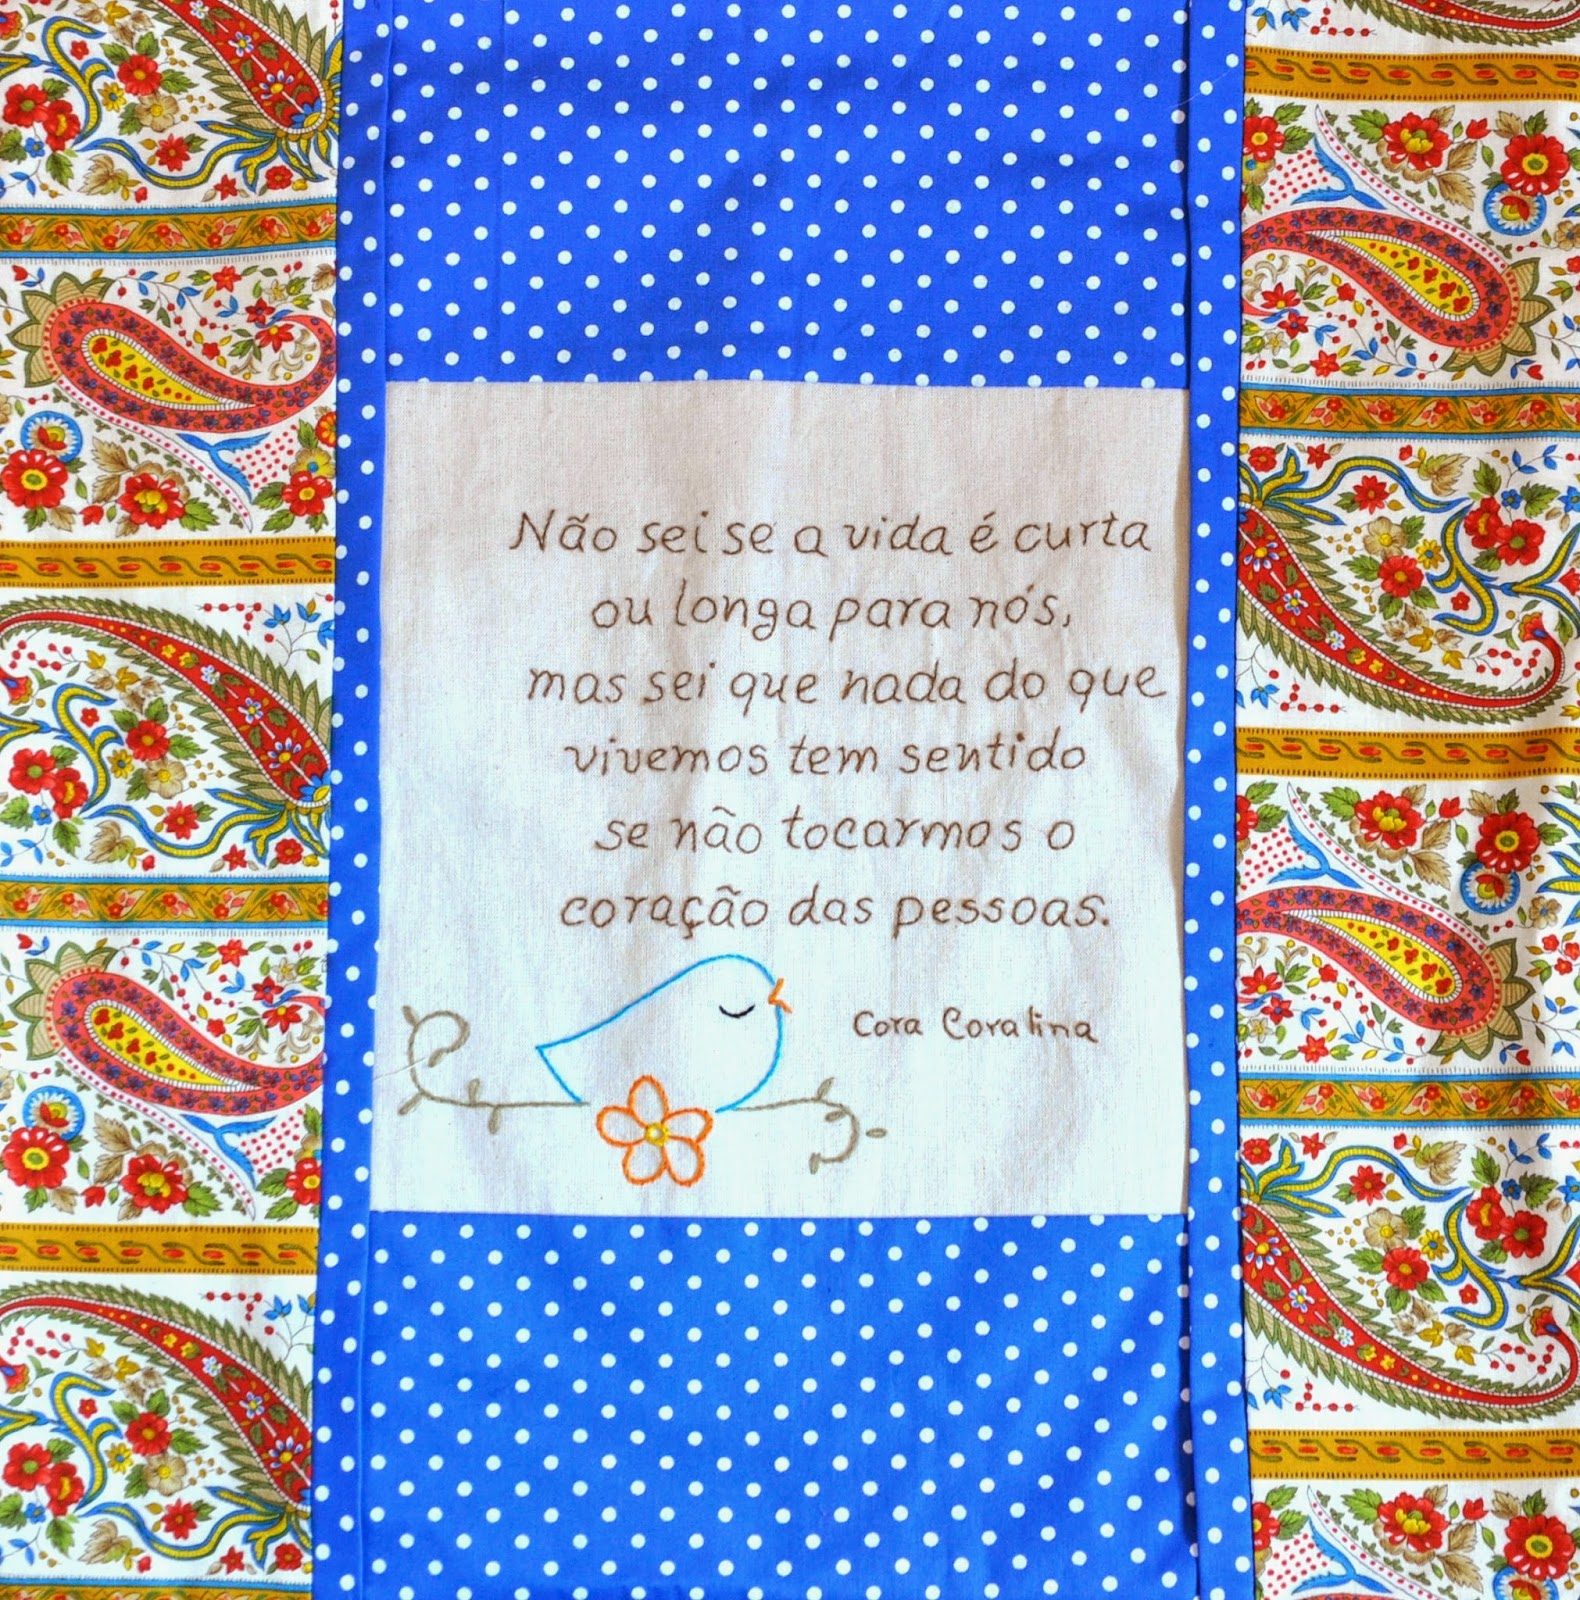 Não sei se a vida é curta
ou longa para nós,
mas sei que nada do que
vivemos tem sentido
se não tocarmos o
coração das pessoas.
Cora Coralina